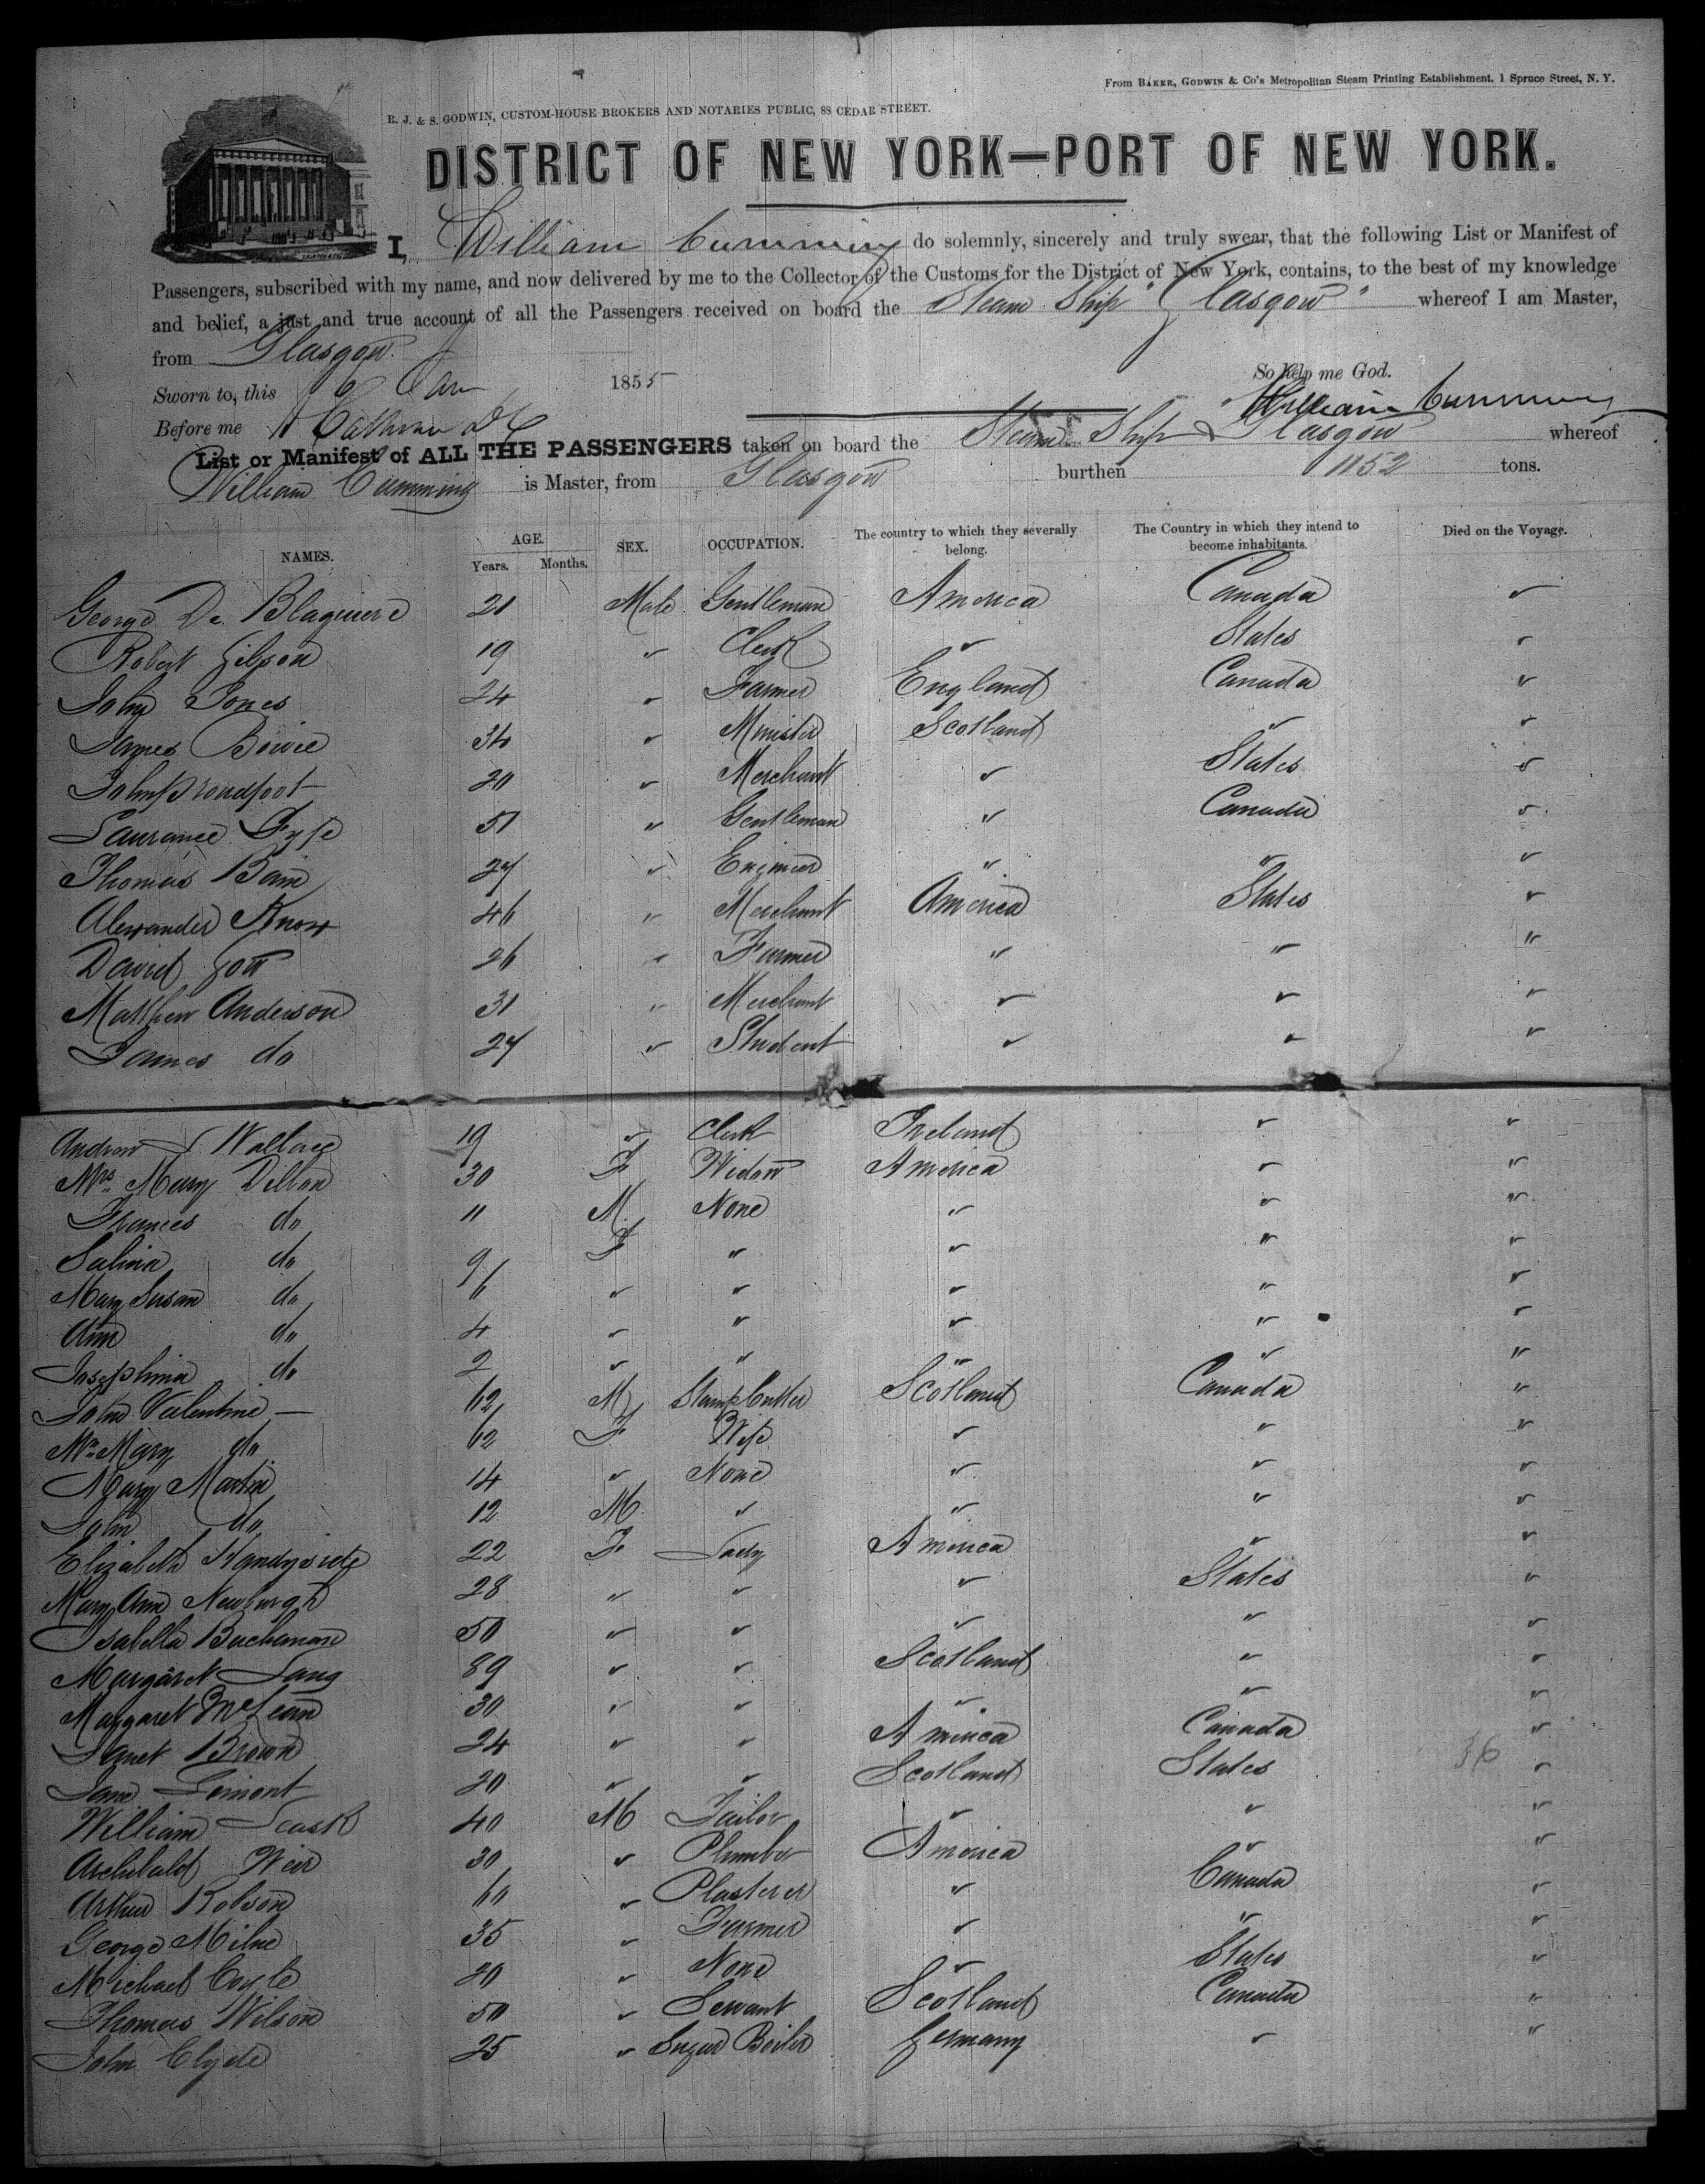 From BAKER, GODWIN & Co's Metropolitan Steam Printing Establishment. 1 Spruce Street, N. Y.
R. J. & S. GODWIN, CUSTOM-HOUSE BROKERS AND NOTARIES PUBLIC, 88 CEDAR STREET.
DISTRICT OF NEW YORK—PORT OF NEW YORK.
I, William Cumming do solemnly, sincerely and truly swear, that the following List or Manifest of
Passengers, subscribed with my name, and now delivered by me to the Collector of the Customs for the District of New York, contains, to the best of my knowledge
and belief, a just and true account of all the Passengers received on board the Steam Ship "Glasgow" whereof I am Master,
from Glasgow.
So help me God.
Sworn to, this 6 Jan 1855
William Cumming
Before me
List or Manifest of ALL THE PASSENGERS taken on board the Steam Ship Glasgow whereof
William Cumming is Master, from Glasgow burthen 1152 tons.
NAMES. AGE. Years. Months. SEX. OCCUPATION. The country to which they severally belong. The Country in which they intend to become inhabitants. Died on the Voyage.
George De Blaquiere 21 Male Gentleman America Canada
Robert Gibson 19 " Clerk " States "
John Jones 24 " Farmer England Canada "
James Bowie 34 " Minister Scotland " "
John Proudfoot 20 " Merchant " States "
Laurance Fyfe 51 " Gentleman " Canada "
Thomas Bain 27 " Engineer " " "
Alexander Knox 46 " Merchant America States "
David Gow 26 " Farmer " " "
Matthew Anderson 31 " Merchant " " "
James do 27 " Student " " "
Andrew Wallace 19 " Clerk Ireland " "
Mrs. Mary Dillon 30 F Widow America " "
Frances do 11 M None " " "
Salina do 9 F " " " "
Mary Susan do 6 " " " " "
Ann do 4 " " " " "
Josephina do 2 " " " " "
John Valentine — 62 M Cutter Scotland Canada "
Mrs Mary do 62 F Wife " " "
Mary Martin 14 " None " " "
John do 12 M " " " "
Elizabeth Handyside 22 F Lady America " "
Mary Ann Newburgh 28 " " " States "
Isabella Buchanan 50 " " " " "
Margaret Lang 39 " " Scotland " "
Margaret McLean 30 " " " " "
Janet Brown 24 " " America Canada "
36
Jane Lemont 20 " " Scotland States "
William Leask 40 M Tailor " " "
Archibald Weir 30 " Plumber America " "
Arthur Robson 60 " Plasterer " Canada "
George Milne 35 " Farmer " " "
Michael Coyle 20 " None " States "
Thomas Wilson 50 " Servant Scotland Canada "
John Clyde 25 " Sugar Boiler Germany " "